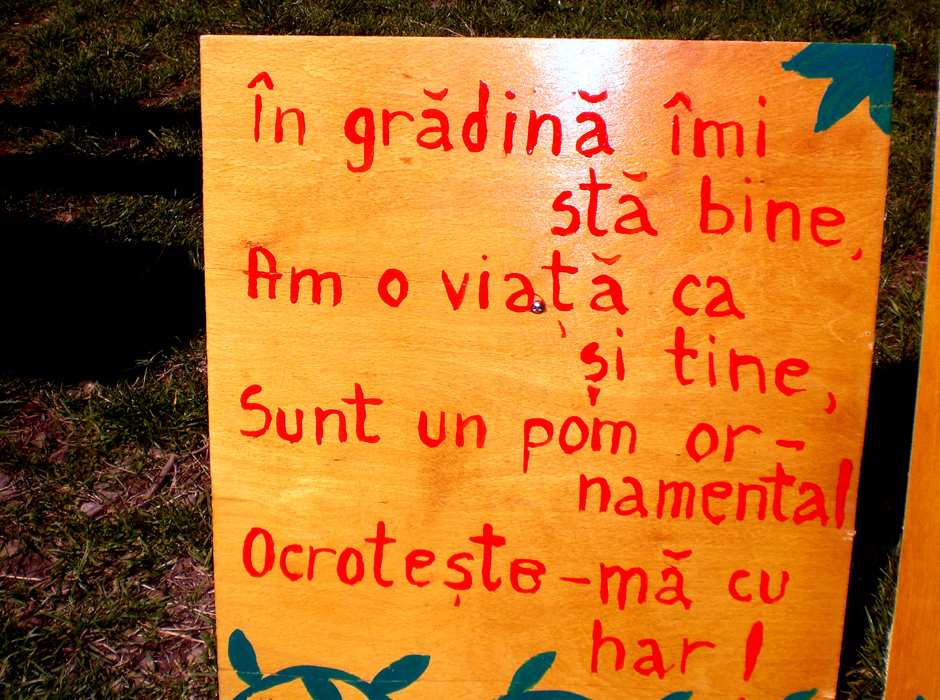 În grădină îmi
stă bine,
Am o viață ca
și tine,
Sunt un pom or-
namental
Ocrotește-mă cu
har!